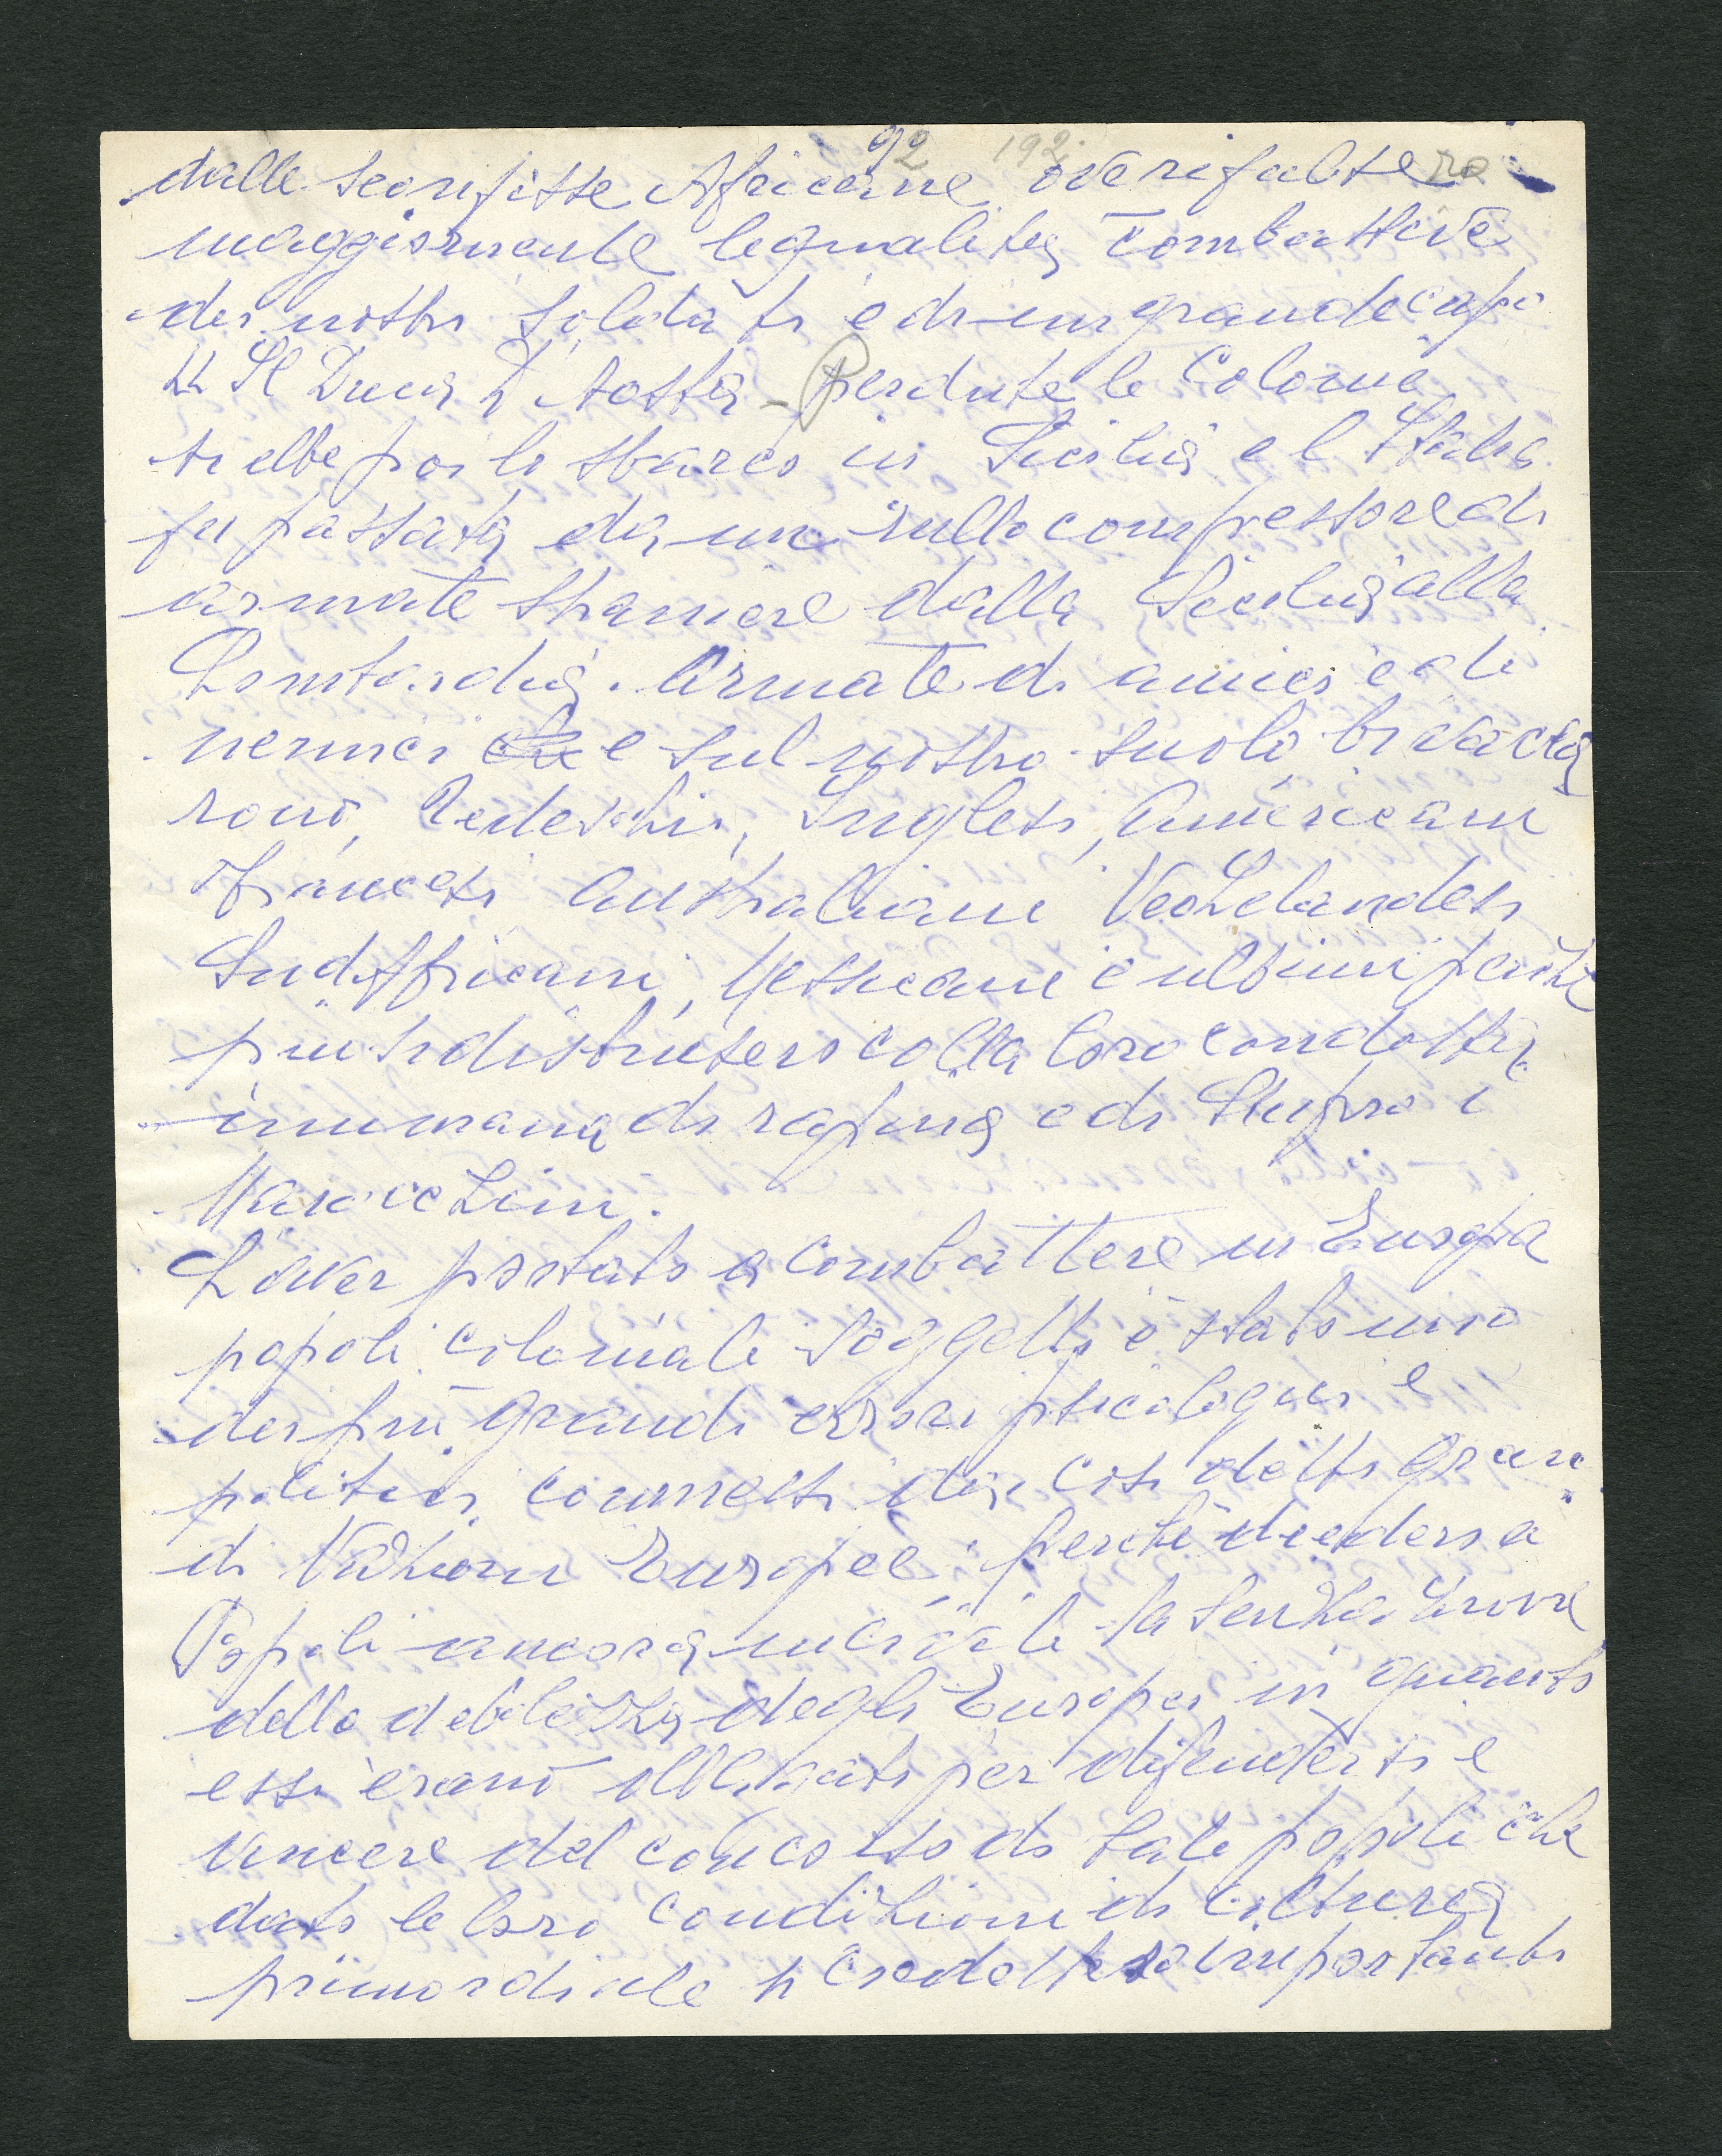 92 192
dalle sconfitte Africane ove rifulsero
maggiormente le qualità combattive
dei nostri soldati e di un grande capo
Il Duca D'Aosta - Perdute le Colonie
si ebbe poi lo sbarco in Sicilia e l'Italia
fu passata da un rullo compressore di
armate straniere dalla Sicilia alla
Lombardia. Armate di amici e di
nemici che e sul nostro suolo bivacca
rono, Tedeschi, Inglesi, Americani
Francesi Australiani NeoZelandesi
SudAfricani, Messicani e ultimi perchè
più si distinsero colla loro condotta
inumana di rapina e di Stupro i
Marocchini.
L'aver portato a combattere in Europa
popoli coloniali soggetti è stato uno
dei più grandi errori psicologici e
politici commessi dai così detti gran
di Nazioni Europee, perchè diedero a
Popoli ancora incivili la senzazione
della debolezza degli Europei in quanto
essi erano obbligati per difendersi e
vincere del concorso di tali popoli che
dato le loro condizioni di cultura
primordiale si credettero importanti